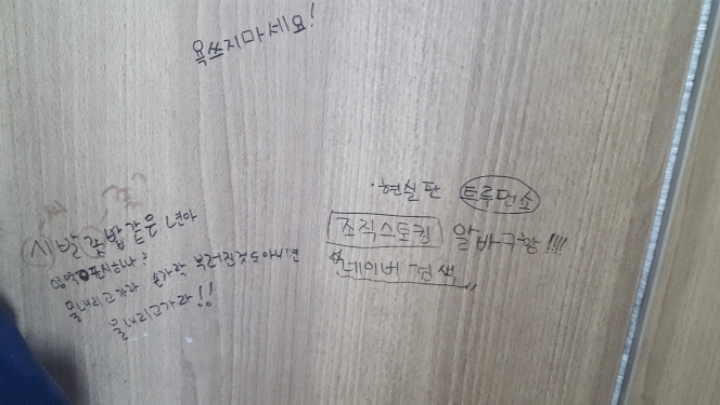 욕쓰지마세요!
·현실판 트루먼쇼
조직스토킹 알바구함!!!!
*네이버 검색
씨 좆?
시발좆밥같은 년아
영역표시하냐?
물내리고가라 손가락 부러진것도아니면
물내리고가라!!